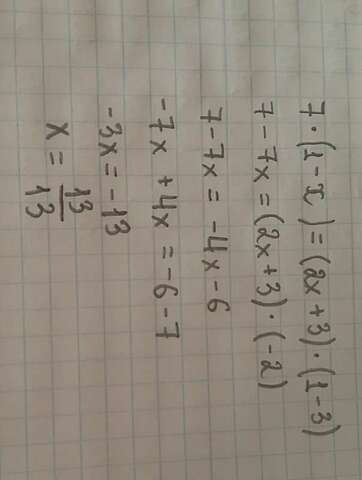 7·(1-x)=(2x+3)·(1-3)
7-7x=(2x+3)·(-2)
7-7x=-4x-6
-7x+4x=-6-7
-3x=-13
x=13/13